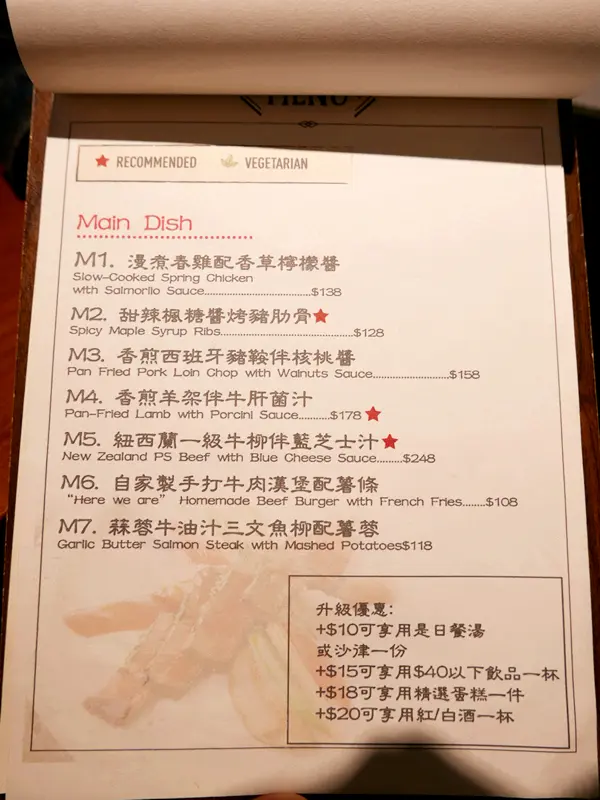 MENU
RECOMMENDED VEGETARIAN
Main Dish
M1. 漫煮春雞配香草檸檬醬
Slow-Cooked Spring Chicken
with Salmorilo Sauce....................................$138
M2. 甜辣楓糖醬烤豬肋骨
Spicy Maple Syrup Ribs.............................................$128
M3. 香煎西班牙豬鞍伴核桃醬
Pan Fried Pork Loin Chop with Walnuts Sauce.........................$158
M4. 香煎羊架伴牛肝菌汁
Pan-Fried Lamb with Porcini Sauce..........$178
M5. 紐西蘭一級牛柳伴藍芝士汁
New Zealand PS Beef with Blue Cheese Sauce.........$248
M6. 自家製手打牛肉漢堡配薯條
“Here we are” Homemade Beef Burger with French Fries.......$108
M7. 蒜蓉牛油汁三文魚柳配薯蓉
Garlic Butter Salmon Steak with Mashed Potatoes$118
升級優惠:
+$10可享用是日餐湯
或沙律一份
+$15可享用$40以下飲品一杯
+$18可享用精選蛋糕一件
+$20可享用紅/白酒一杯